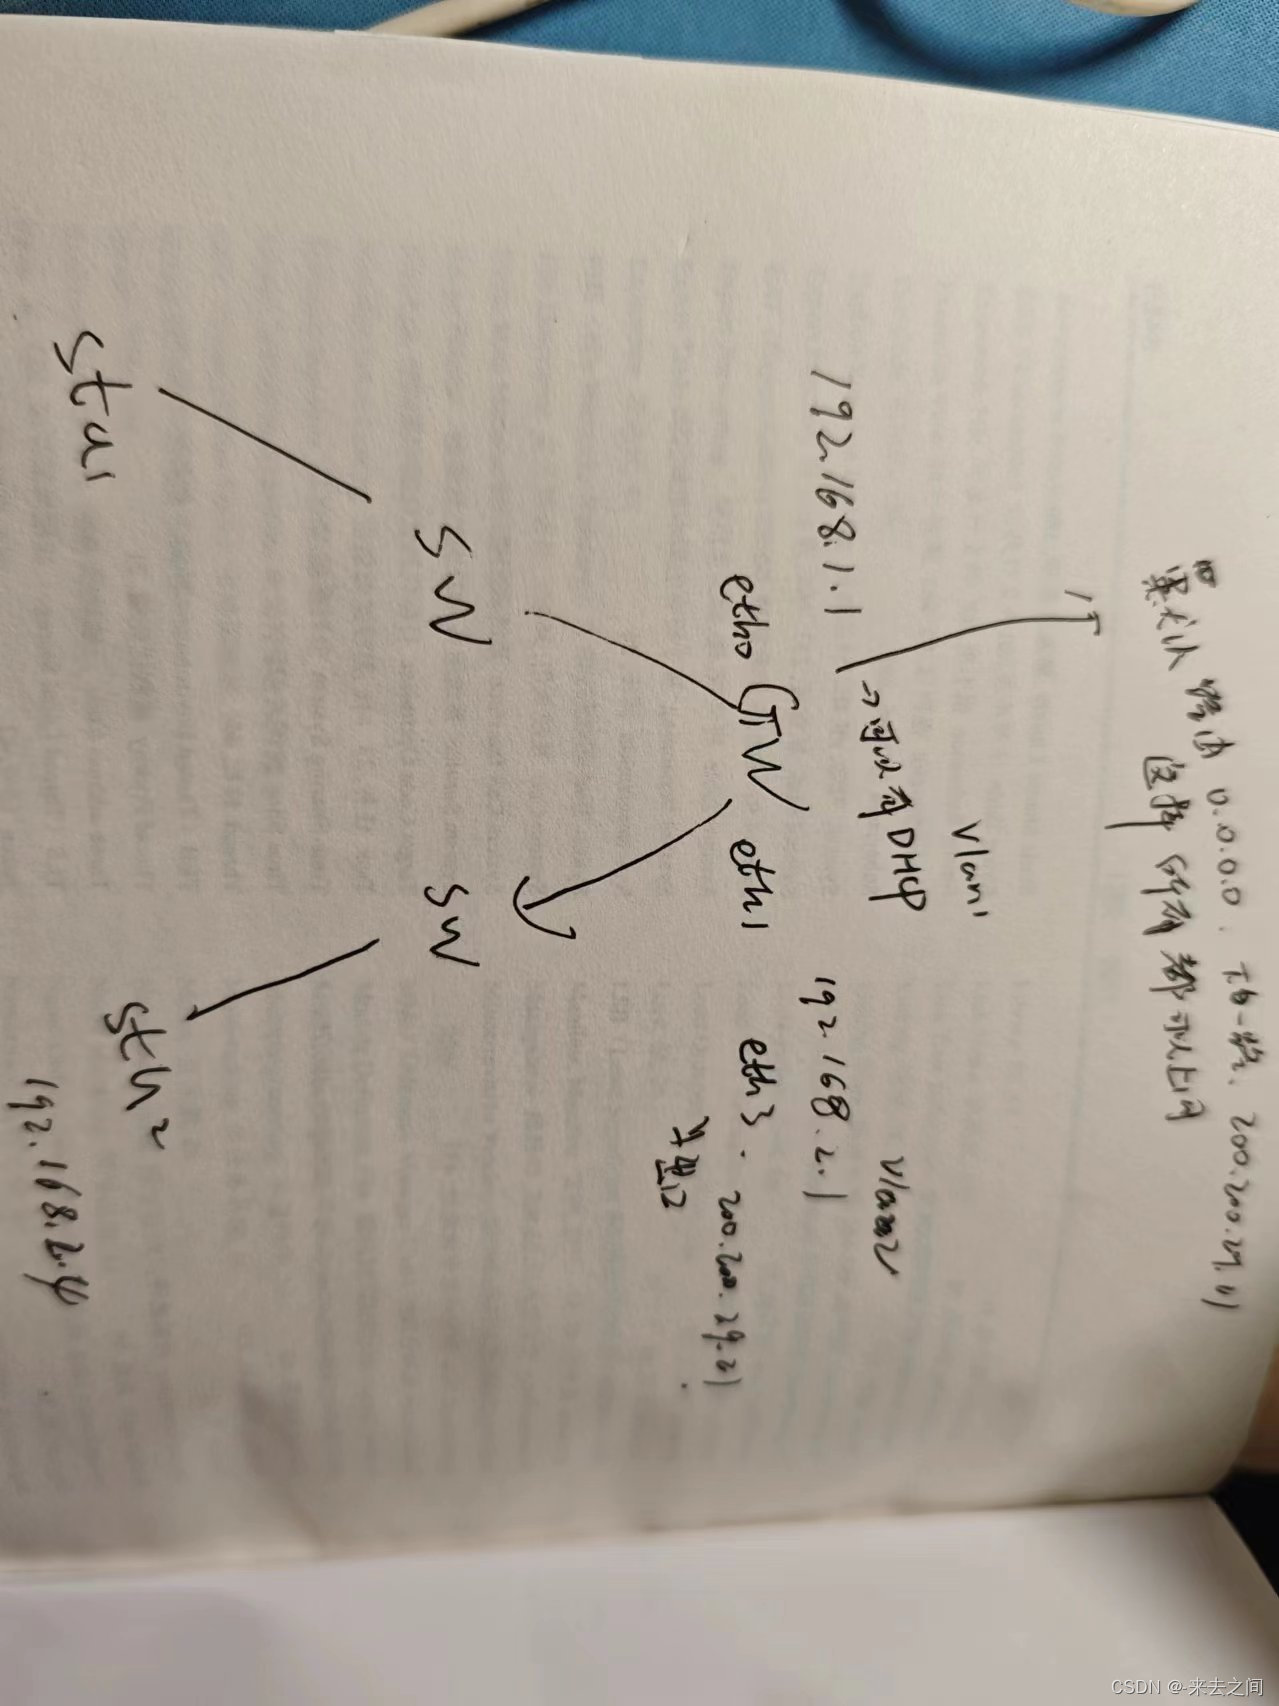 默认路由 0.0.0.0. 下一跳. 200.200.29.01
这样 所有都可以上网
vlan1
vlan2
→可以有DHCP
192.168.1.1
192.168.2.1
eth0
GW
eth1
eth3.
200.200.29.21
SW
SW
sta1
sta2
192.168.2.4
CSDN @-来去之间